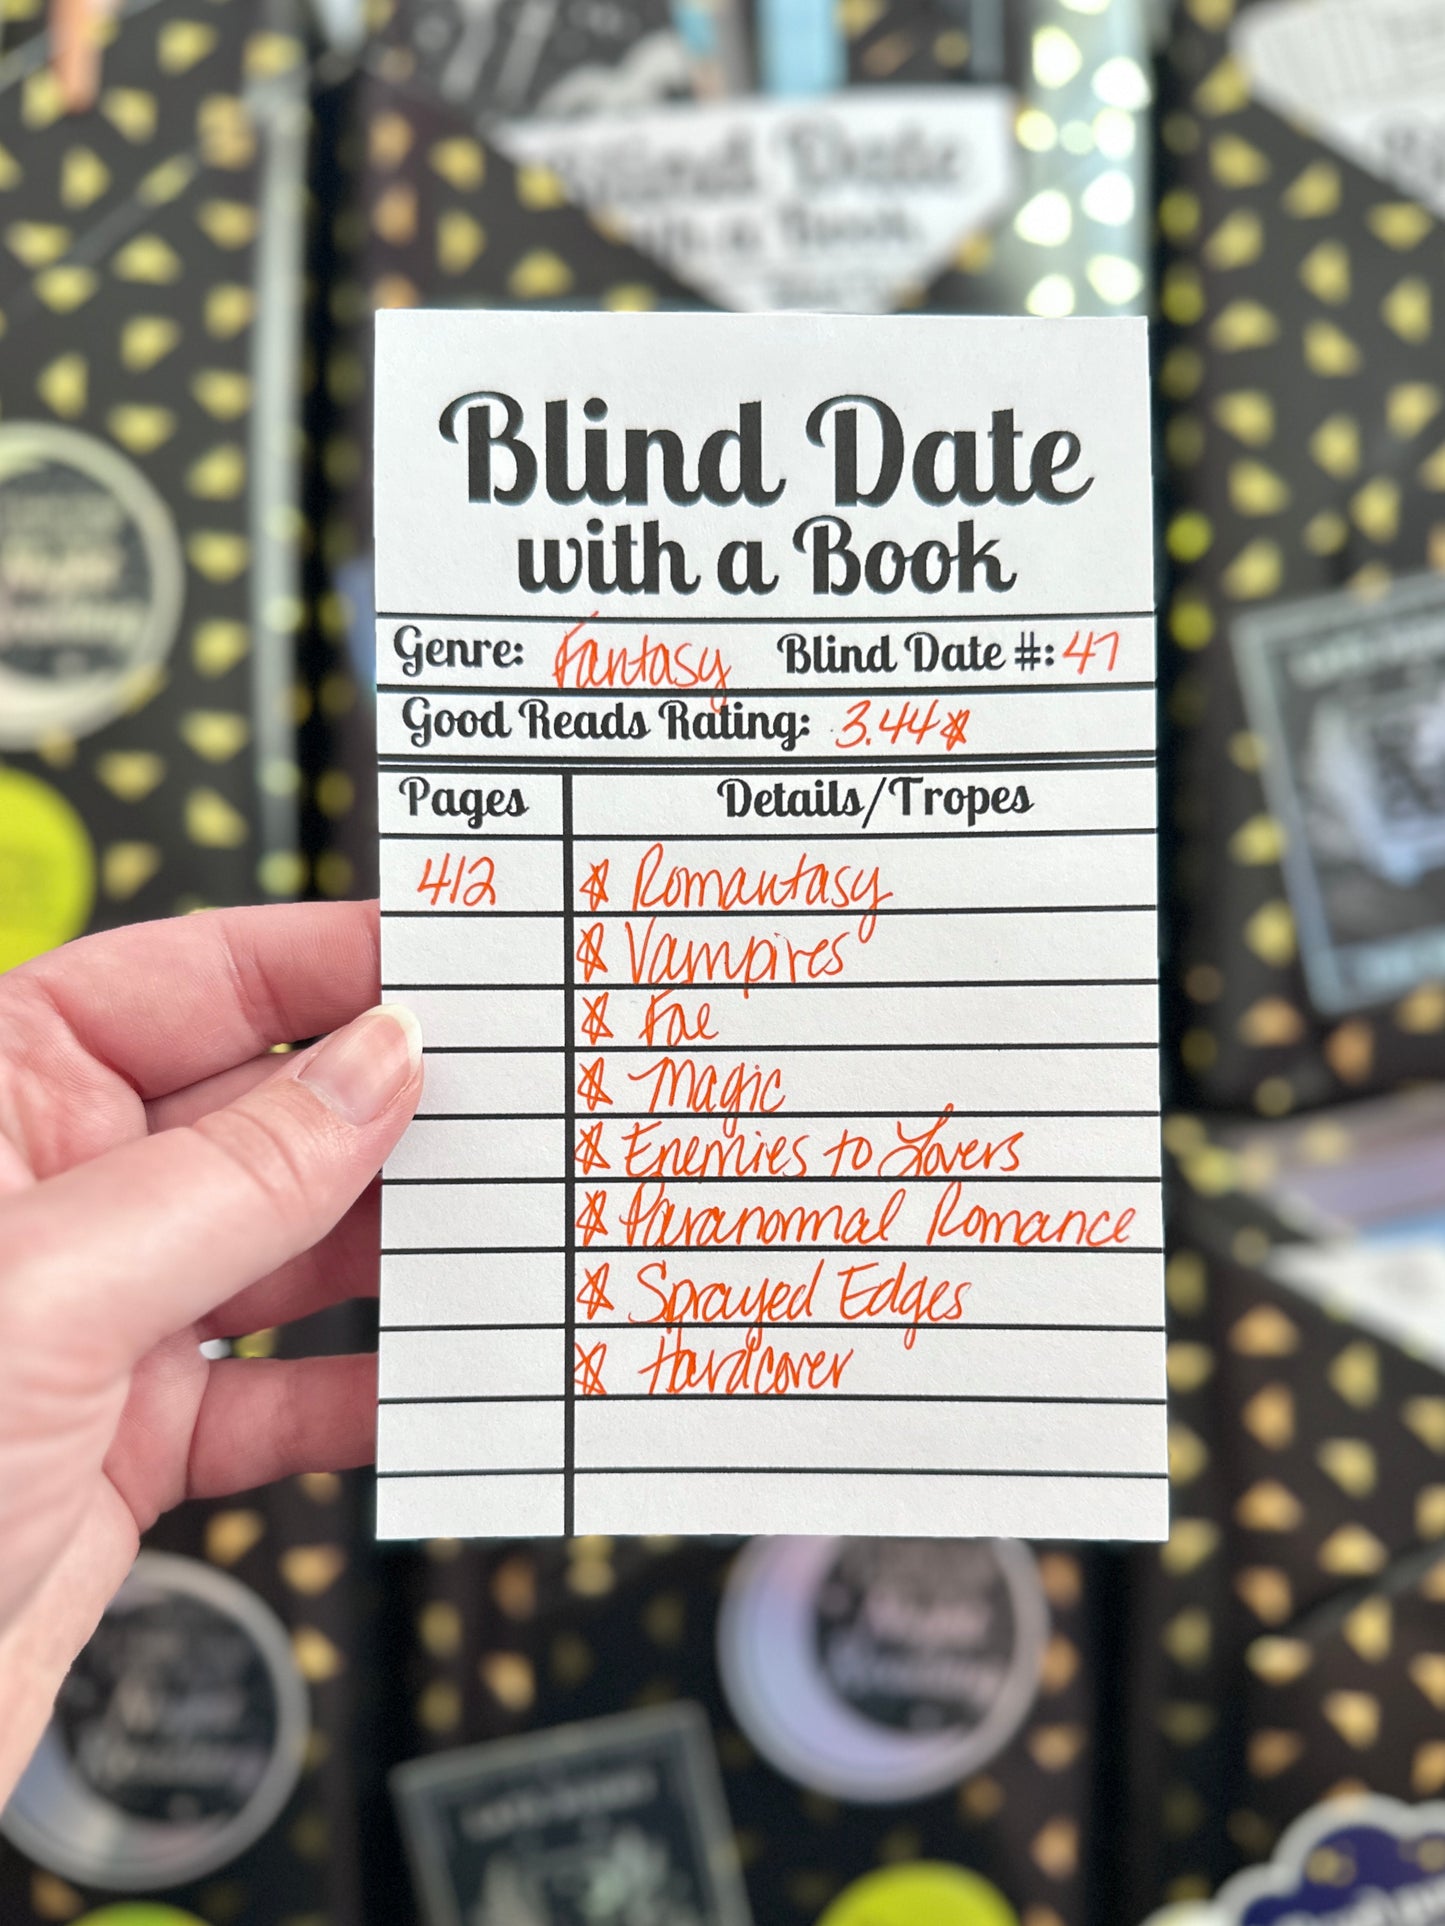 Blind Date
with a Book
Blind Date
with a Book
Genre: Fantasy Blind Date #: 47
Good Reads Rating: 3.44☆
Pages Details/Tropes
412 ☆ Romantasy
☆ Vampires
☆ Fae
☆ Magic
☆ Enemies to Lovers
☆ Paranormal Romance
☆ Sprayed Edges
☆ Hardcover